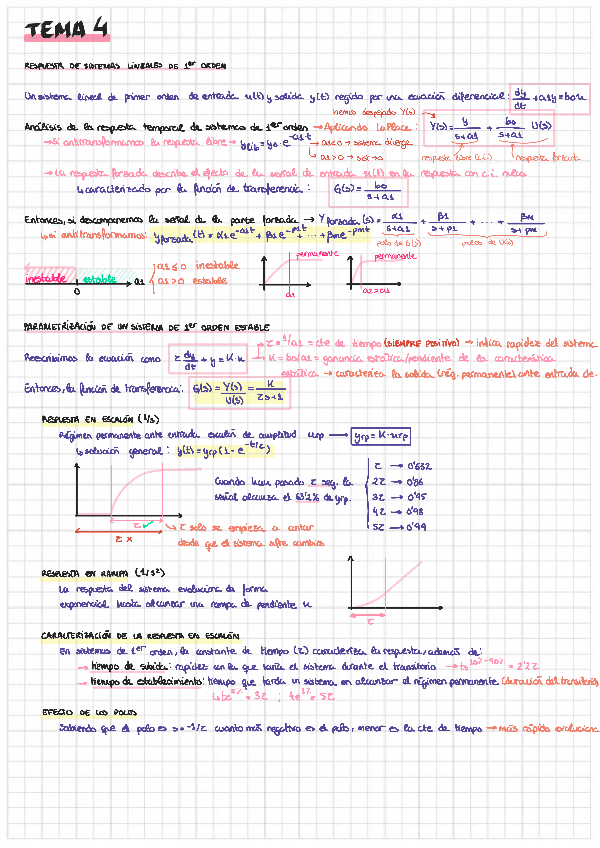 TEMA 4
RESPUESTA DE SISTEMAS LINEALES DE 1er ORDEN
Un sistema lineal de primer orden de entrada u(t) y salida y(t) regido por una ecuación diferencial: dy/dt + a1y = b0u
hemos despejado Y(s)
Análisis de la respuesta temporal de sistemas de 1er orden → Aplicando LaPlace: Y(s) = y/(s+a1) + b0/(s+a1) U(s)
→ Si antitransformamos la respuesta libre → ylib = y0·e^-a1t → a1<0 → sistema diverge
→ a1>0 → sist → 0
respuesta libre (c.i.) respuesta forzada
→ La respuesta forzada describe el efecto de la señal de entrada u(t) en la respuesta con c.i. nulas
↳ caracterizado por la función de transferencia: G(s) = b0/(s+a1)
Entonces, si descomponemos la señal de la parte forzada → Yforzada(s) = α1/(s+a1) + β1/(s+p1) + ... + βm/(s+pm)
↳ si antitransformamos: yforzada(t) = α1e^-a1t + β1e^-p1t + ... + βme^-pmt
polo de G(s) polos de U(s)
inestable estable a1
0
a1 ≤ 0 inestable
a1 > 0 estable
permanente
a1
permanente
a2>a1
PARAMETRIZACIÓN DE UN SISTEMA DE 1er ORDEN ESTABLE
→ τ = 1/a1 = cte de tiempo (SIEMPRE POSITIVO) → indica rapidez del sistema
Reescribimos la ecuación como τ dy/dt + y = K·u → K = b0/a1 = ganancia estática/pendiente de la característica
estática → caracteriza la salida (rég. permanente) ante entrada de
Entonces, la función de transferencia: G(s) = Y(s)/U(s) = K/(τs+1)
RESPUESTA EN ESCALÓN (1/s)
Régimen permanente ante entrada escalón de amplitud urp → yrp = K·urp
↳ solución general: y(t) = yrp(1-e^-t/τ)
Cuando han pasado τ seg. la
señal alcanza el 63'2% de yrp.
τ → 0'632
2τ → 0'86
3τ → 0'95
4τ → 0'98
5τ → 0'99
τ ✓
τ x
↳ τ solo se empieza a contar
desde que el sistema sufre cambios
RESPUESTA EN RAMPA (1/s²)
La respuesta del sistema evoluciona de forma
exponencial hasta alcanzar una rampa de pendiente K
τ
CARACTERIZACIÓN DE LA RESPUESTA EN ESCALÓN
En sistemas de 1er orden, la constante de tiempo (τ) caracteriza la respuesta, además de:
→ tiempo de subida: rapidez en la que varía el sistema durante el transitorio → ts^10%-90% = 2'2τ
→ tiempo de establecimiento: tiempo que tarda un sistema en alcanzar el régimen permanente (duración del transitorio)
↳ te^5% = 3τ ; te^1% = 5τ
EFECTO DE LOS POLOS
Sabiendo que el polo es s = -1/τ cuanto más negativo es el polo, menor es la cte de tiempo → más rápido evoluciona